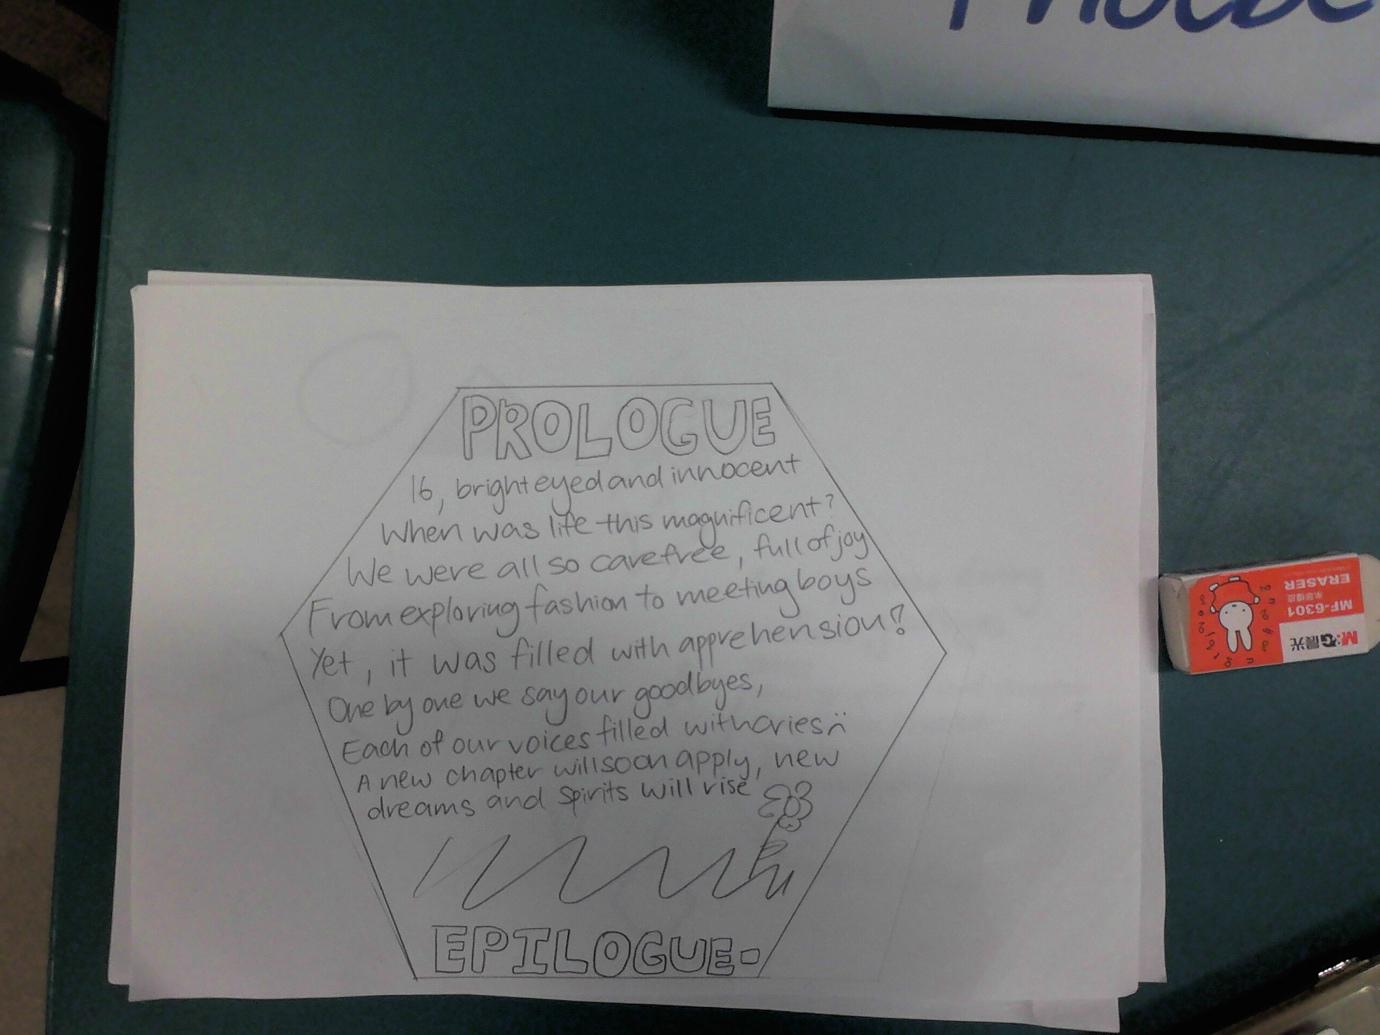 Phoebe
PROLOGUE
16, bright eyed and innocent
When was life this magnificent?
We were all so carefree, full of joy
From exploring fashion to meeting boys
Yet, it was filled with apprehension?
One by one we say our goodbyes,
Each of our voices filled with cries
A new chapter will soon apply, new
dreams and spirits will rise
EPILOGUE-
M&G 晨光
MF-6301
ERASER